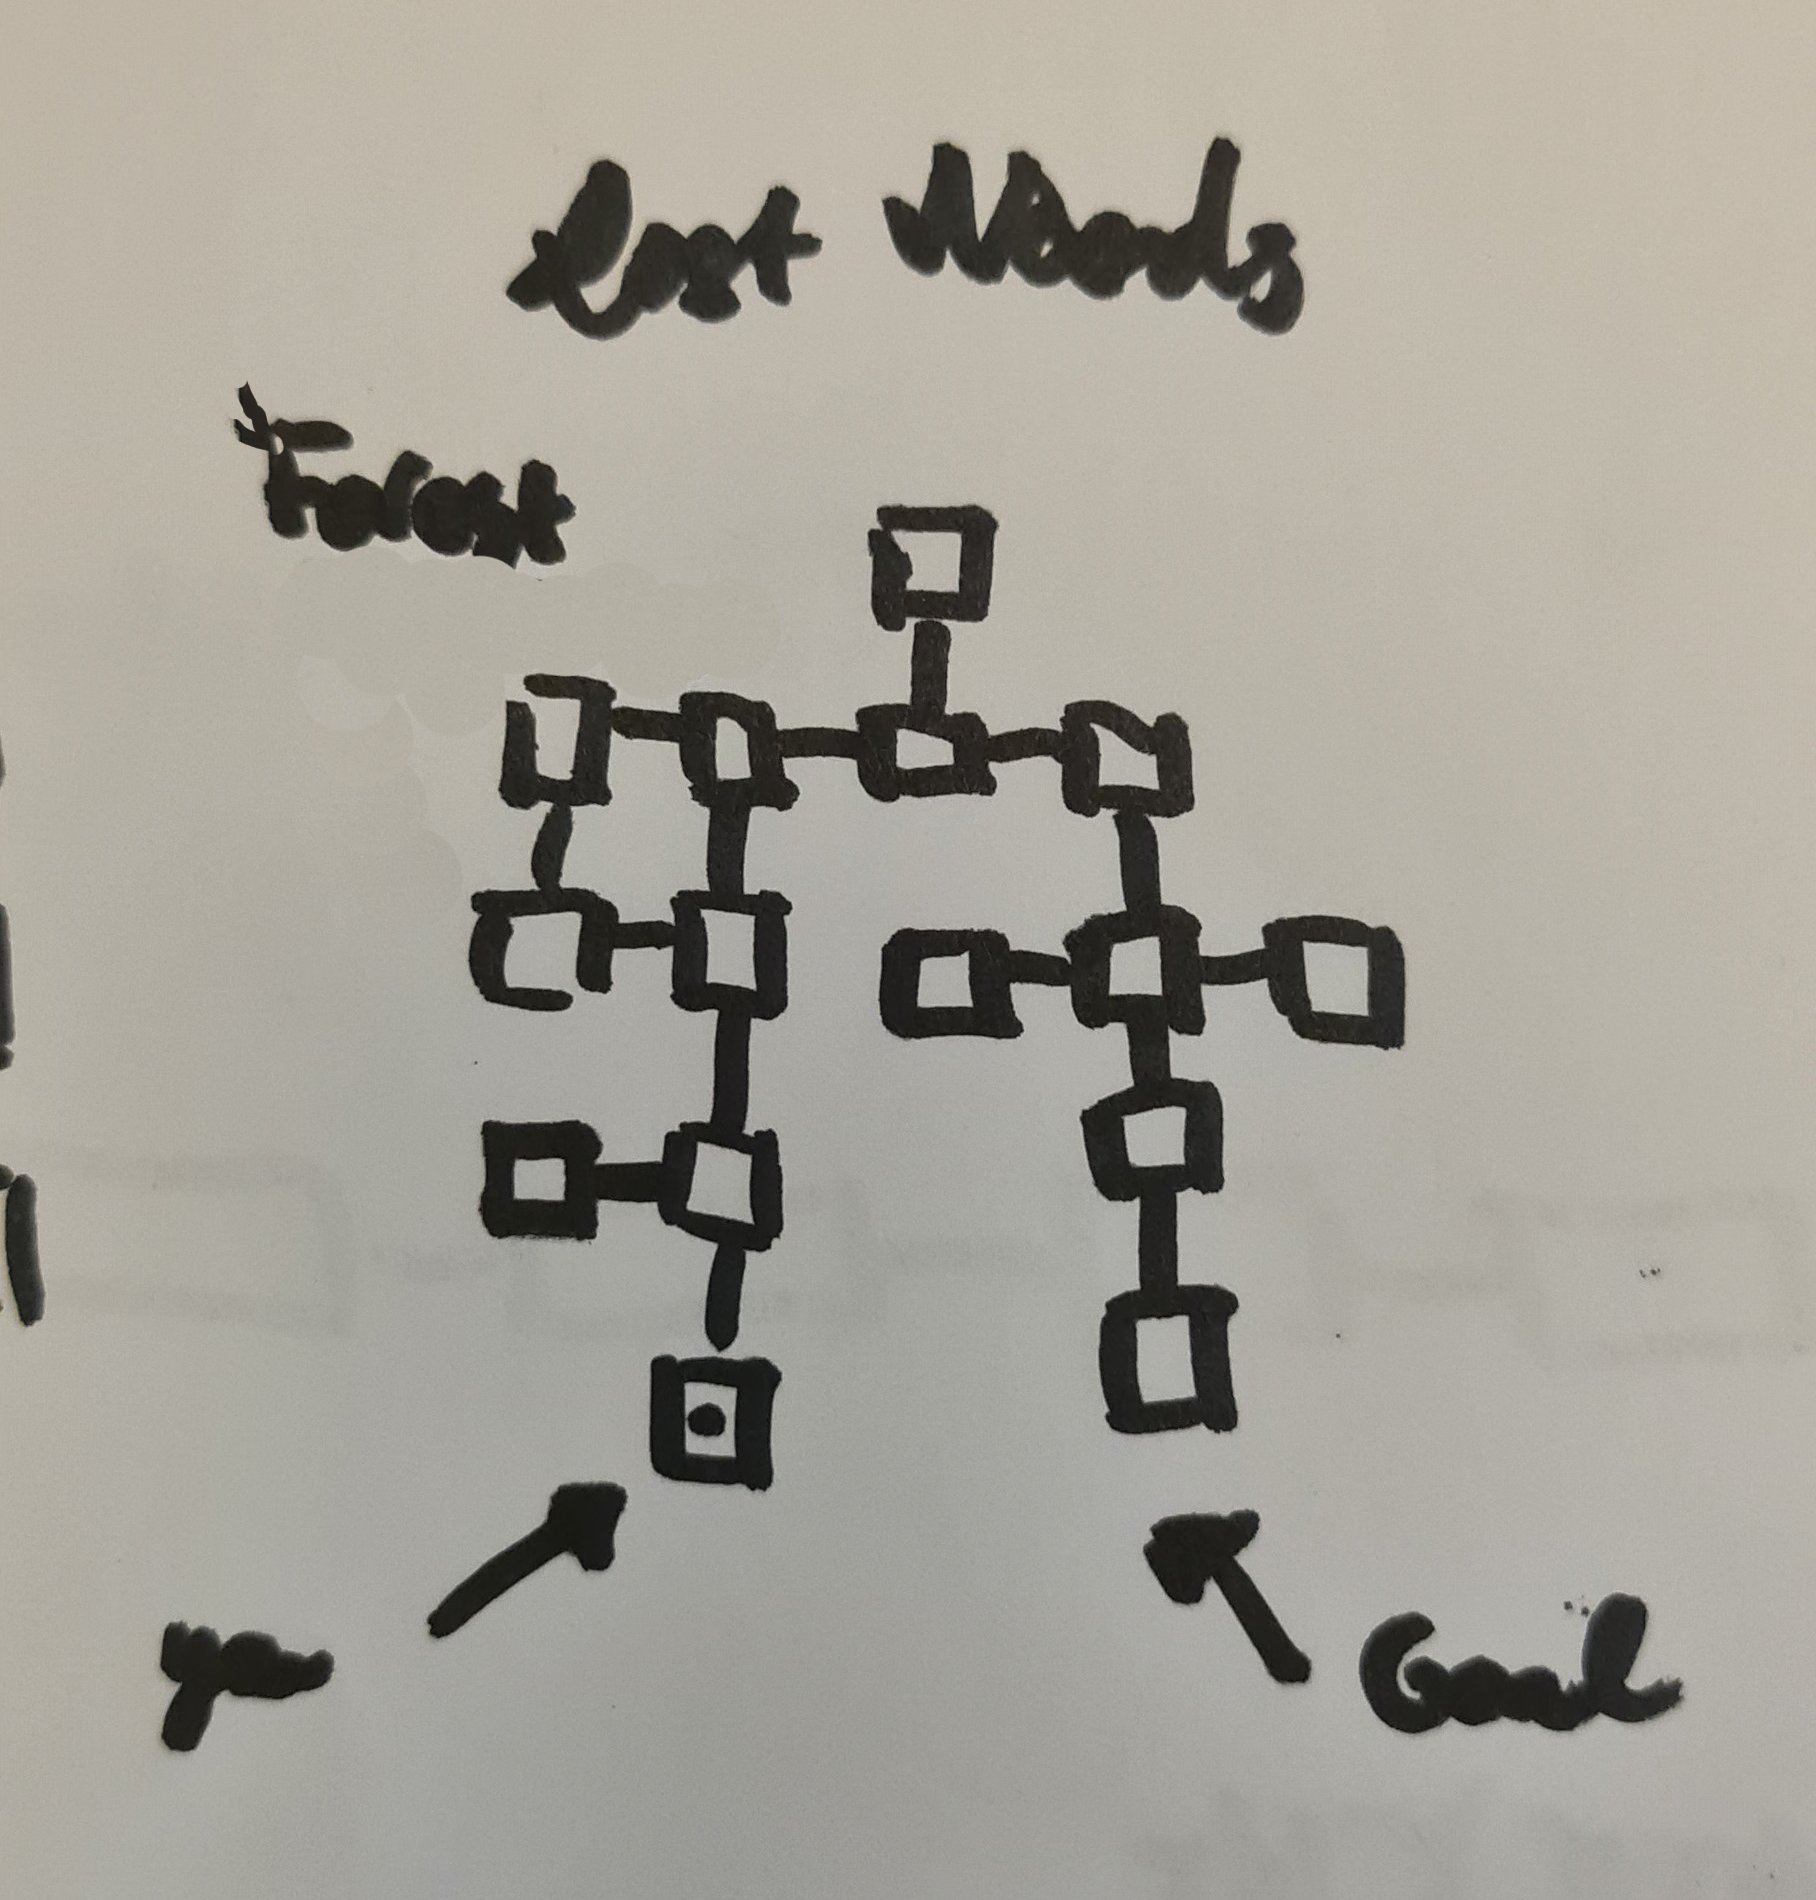 Lost Woods
Forest
you
Goal